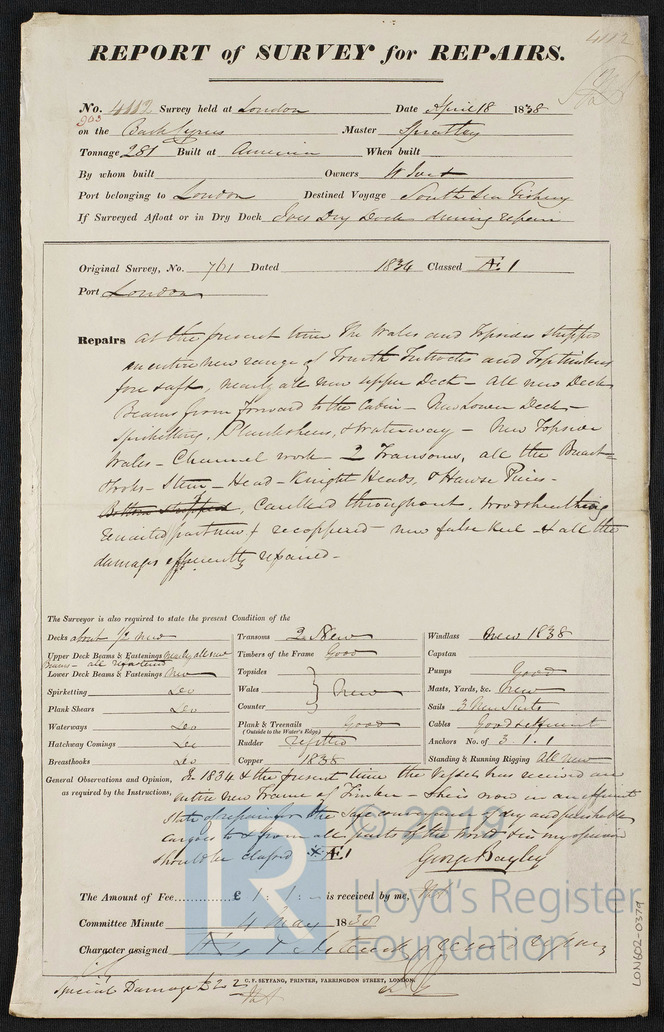 4112
REPORT of SURVEY for REPAIRS.
No. 4112 Survey held at London Date April 18 1838
903
on the Bark Cyrus Master Spratley
Tonnage 281 Built at America When built
By whom built Owners W
Port belonging to London Destined Voyage South Sea Fishery
If Surveyed Afloat or in Dry Dock Ives Dry Dock during repair
Original Survey, No. 761 Dated 1834 Classed Æ 1
Port London
Repairs at the present time the Wales and Topsides stripped
an entire new range of Fourth Futtocks and Toptimbers
fore & aft, nearly all new upper Deck - All new Deck
Beams from forward to the Cabin - New Lower Deck -
Spirketting, Planksheers, & Waterway - New Topside
Wales - Channel work - 2 Transoms, all the Breast-
Hooks - Stem - Head - Knight Heads, & Hawse Pieces -
Bottom stripped, Caulked throughout, woodsheathing
part new & recoppered - new false Keel & all the
damages efficiently repaired -
The Surveyor is also required to state the present Condition of the
Decks about 1/2 new
Upper Deck Beams & Fastenings Nearly all new
Beams - all refastened
Lower Deck Beams & Fastenings New
Spirketting Do
Plank Shears Do
Waterways Do
Hatchway Comings Do
Breasthooks Do
Transoms 2 New
Timbers of the Frame Good
Topsides
Wales } New
Counter
Plank & Treenails Good
(Outside to the Water's Edge)
Rudder refitted
Copper 1838
Windlass New 1838
Capstan
Pumps Good
Masts, Yards, &c. New
Sails 3 New Suits
Cables Good & sufficient
Anchors No. of 3 . 1 . 1
Standing & Running Rigging All new
General Observations and Opinion, In 1834 & the present time the Vessel has received an
as required by the Instructions, entire new Frame of Timber - She is now in an efficient
State of repair for the Safe conveyance of dry and perishable
Cargoes to & from all parts of the World & in my opinion
should be classed * Æ 1
George Bayley
© 2019
LR
Lloyd's Register
Foundation
The Amount of Fee £ 1 : 1 : - is received by me,
Committee Minute 4 May 1838
Character assigned
C. F. SEYFANG, PRINTER, FARRINGDON STREET, LONDON.
Special Damage £2 2
LON602-0379